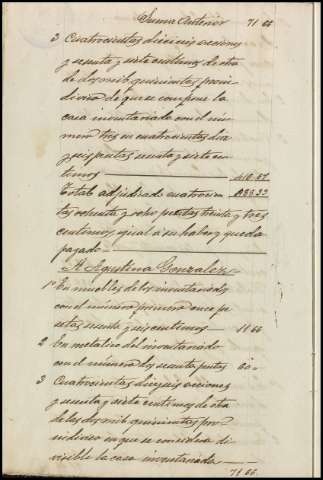 Suma anterior 71 66
3 Cuatrocientas dieciseis acciones
y sesenta y siete centimos de otra
de dos mil quinientas proin-
diviso de que se compone la
casa inventariada con el nú-
mero tres en cuatrocientas diez
y seis pesetas sesenta y siete cen-
timos 416.67
Total adjudicado cuatrocien- 488.33
tas ochenta y ocho pesetas treinta y tres
centimos, igual a su haber y queda
pagado
A Agustina Gonzalez
1º En muebles de los inventariados
con el número primero once pe-
setas sesenta y seis centimos 11 66
2 En metalico del inventariado
con el número dos sesenta pesetas 60 "
3 Cuatrocientas dieziseis acciones
y sesenta y siete centimos de otra
de las dos mil quinientas pro-
indiviso en que se considera di-
visible la casa inventariada
71 66